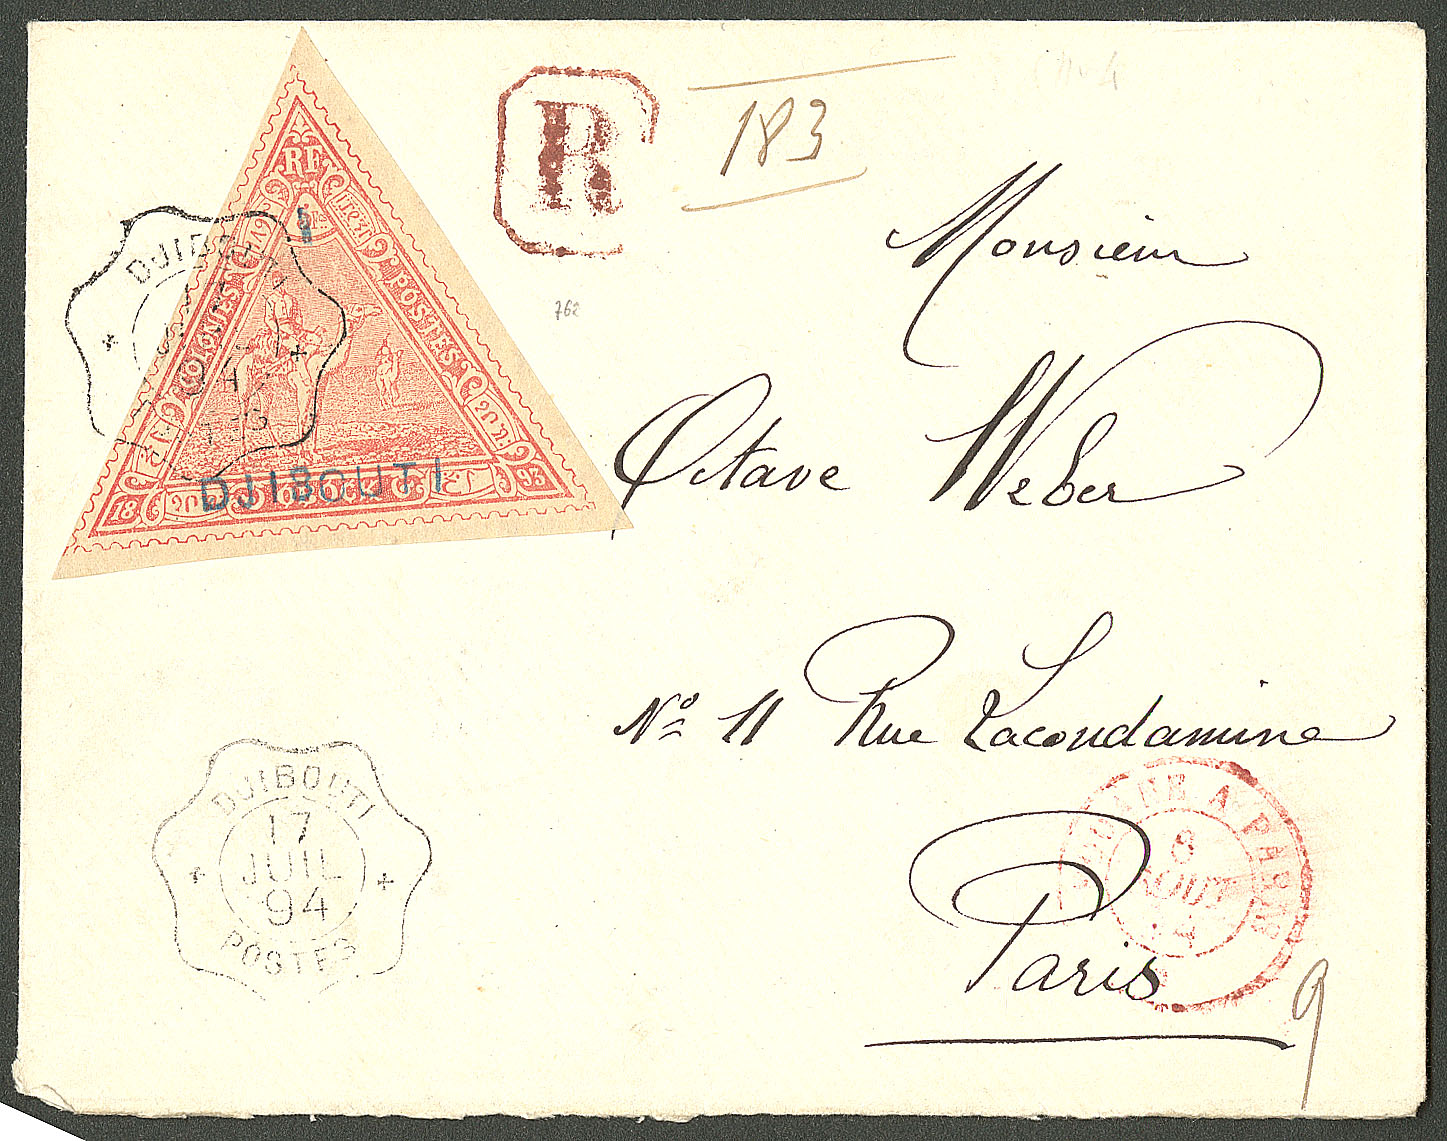 R
183
762
RF
COLONIES
POSTES
DJIBOUTI
18
93
DJIBOUTI
Monsieur
Octave Weber
Nº 11 Rue Lacondamine
Paris
DJIBOUTI
17
JUIL
94
POSTES
A PARIS
8
AOUT
9